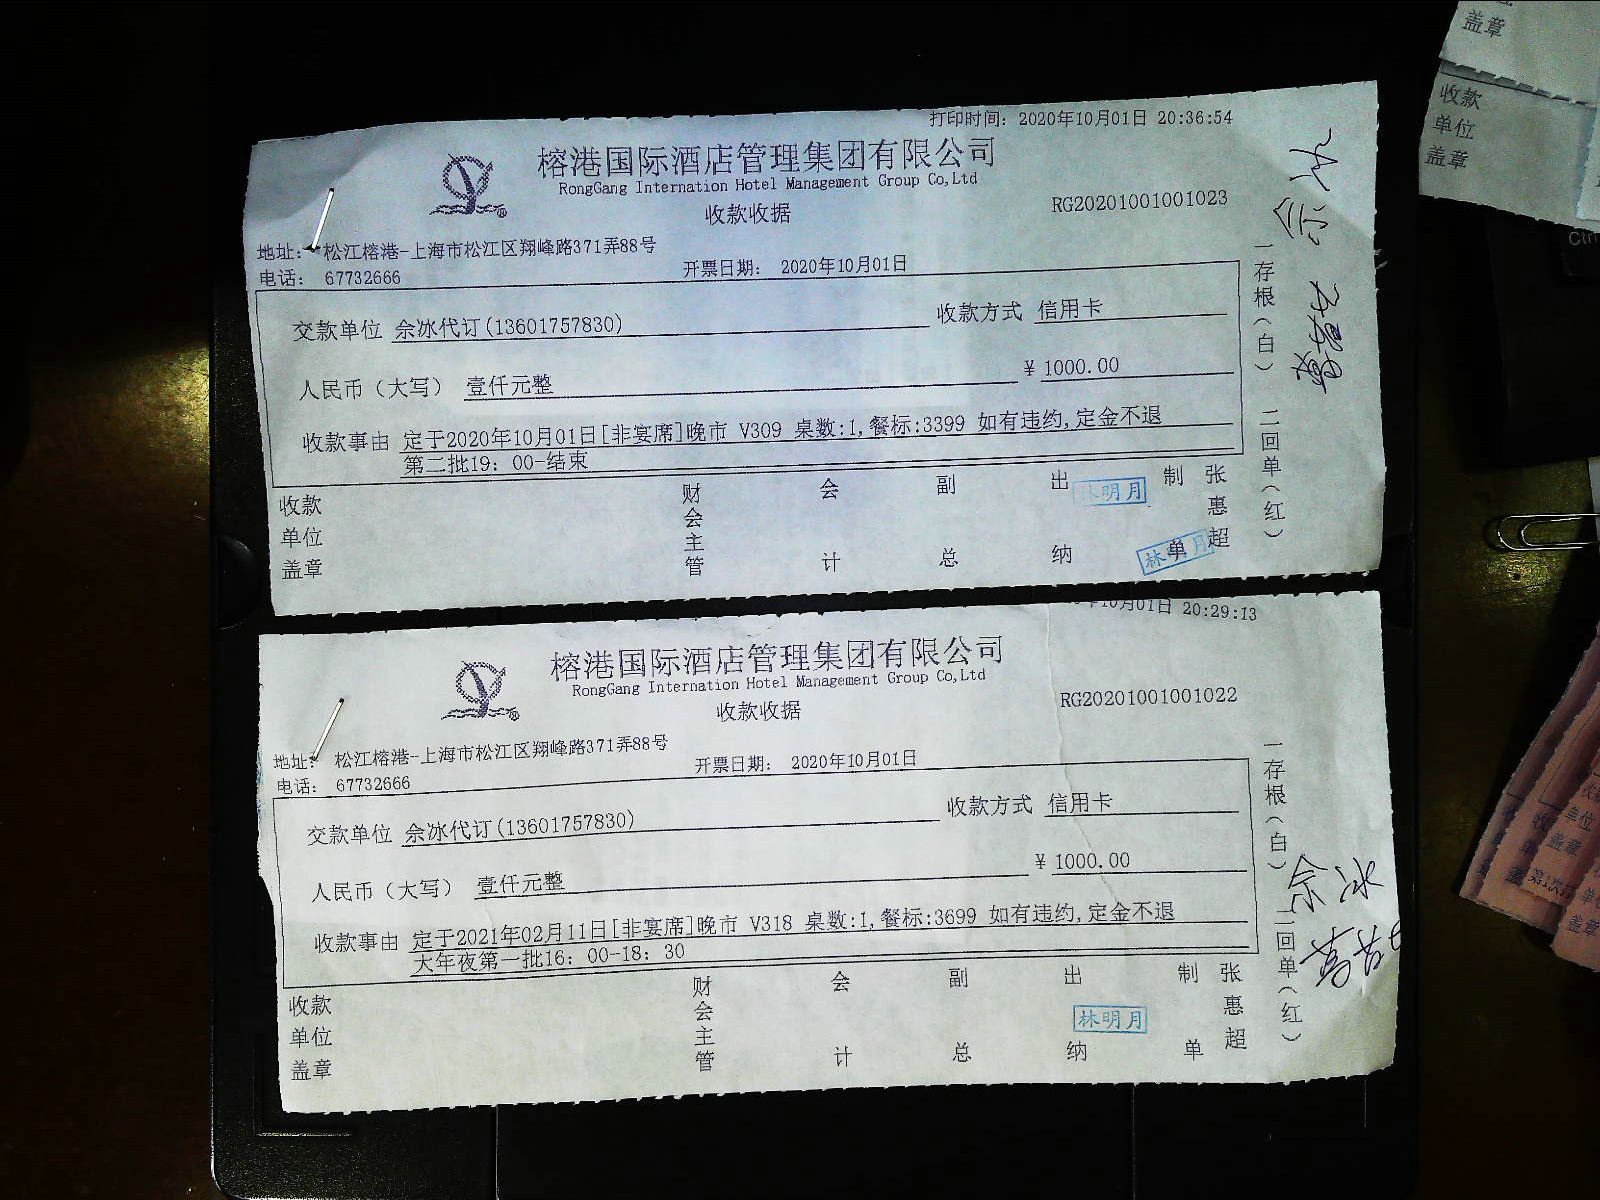 打印时间: 2020年10月01日 20:36:54
榕港国际酒店管理集团有限公司
RongGang Internation Hotel Management Group Co,Ltd
收款收据
RG20201001001023
地址: 松江榕港-上海市松江区翔峰路371弄88号
电话: 67732666
开票日期: 2020年10月01日
交款单位 佘冰代订(13601757830)
收款方式 信用卡
人民币（大写） 壹仟元整
¥ 1000.00
收款事由 定于2020年10月01日[非宴席]晚市 V309 桌数:1,餐标:3399 如有违约,定金不退
第二批19: 00-结束
收款单位盖章
财会主管
会计
副总
出纳
林明月
制单
张惠超
林明月
一存根(白) 二回单(红)
10月01日 20:29:13
榕港国际酒店管理集团有限公司
RongGang Internation Hotel Management Group Co,Ltd
收款收据
RG20201001001022
地址: 松江榕港-上海市松江区翔峰路371弄88号
电话: 67732666
开票日期: 2020年10月01日
交款单位 佘冰代订(13601757830)
收款方式 信用卡
人民币（大写） 壹仟元整
¥ 1000.00
收款事由 定于2021年02月11日[非宴席]晚市 V318 桌数:1,餐标:3699 如有违约,定金不退
大年夜第一批16: 00-18: 30
收款单位盖章
财会主管
会计
副总
出纳
林明月
制单
张惠超
一存根(白) 二回单(红)
盖章
收款
单位
盖章
单位
盖章
盖章